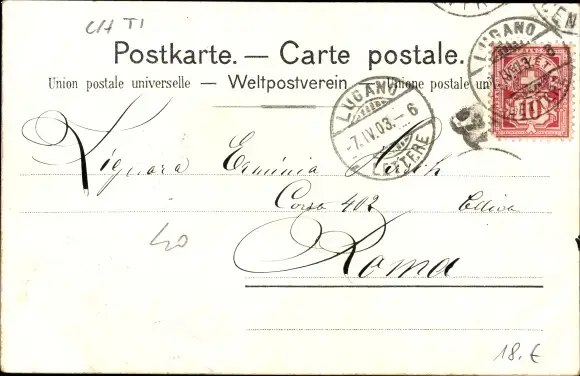 CH TI
Postkarte. — Carte postale.
Union postale universelle — Weltpostverein. — Unione postale
LUGANO
7.IV.03.–6
LETTERE
LUGANO
10
Erminia
Corso 402
Roma
40
18.€